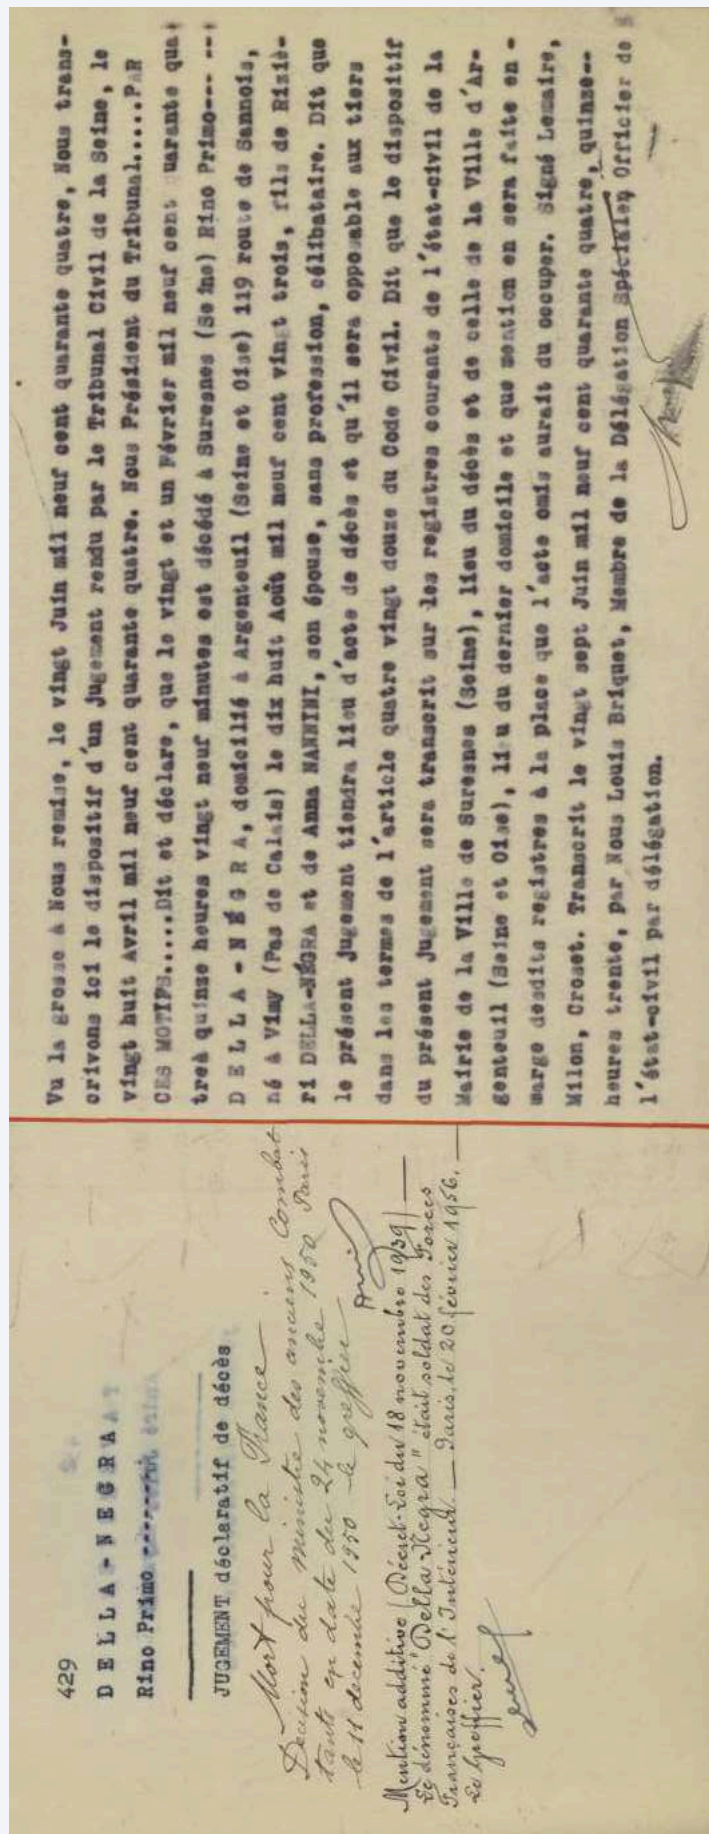 429
DELLA-NEGRA
Rino Primo
JUGEMENT déclaratif de décès
Mort pour la France
Décision du ministre des anciens Combat
tants en date du 24 novembre 1950 Paris
le 11 décembre 1950 le greffier
Mention additive (Décret-Loi du 18 novembre 1939)
Le dénommé "Della-Negra" était soldat des Forces
Françaises de l'Intérieur. — Paris, le 20 février 1956. —
Le Greffier.
Vu la grosse à Nous remise, le vingt Juin mil neuf cent quarante quatre, Nous trans-
crivons ici le dispositif d'un jugement rendu par le Tribunal Civil de la Seine, le
vingt huit Avril mil neuf cent quarante quatre. Nous Président du Tribunal.....PAR
CES MOTIFS.....Dit et déclare, que le vingt et un Février mil neuf cent quarante qua
treà quinze heures vingt neuf minutes est décédé à Suresnes (Seine) Rino Primo--- --
DELLA-NÉGRA, domicilié à Argenteuil (Seine et Oise) 119 route de Sannois,
né à Vimy (Pas de Calais) le dix huit Août mil neuf cent vingt trois, fils de Riziè-
ri DELLA-NÉGRA et de Anna NANNINI, son épouse, sans profession, célibataire. Dit que
le présent jugement tiendra lieu d'acte de décès et qu'il sera opposable aux tiers
dans les termes de l'article quatre vingt douze du Code Civil. Dit que le dispositif
du présent jugement sera transcrit sur les registres courants de l'état-civil de la
Mairie de la Ville de Suresnes (Seine), lieu du décès et de celle de la Ville d'Ar-
genteuil (Seine et Oise), lieu du dernier domicile et que mention en sera faite en -
marge desdits registres à la place que l'acte omis aurait du occuper. Signé Lemaire,
Milon, Crozet. Transcrit le vingt sept Juin mil neuf cent quarante quatre, quinze--
heures trente, par Nous Louis Briquet, Membre de la Délégation Spéciale, Officier de
l'état-civil par délégation.